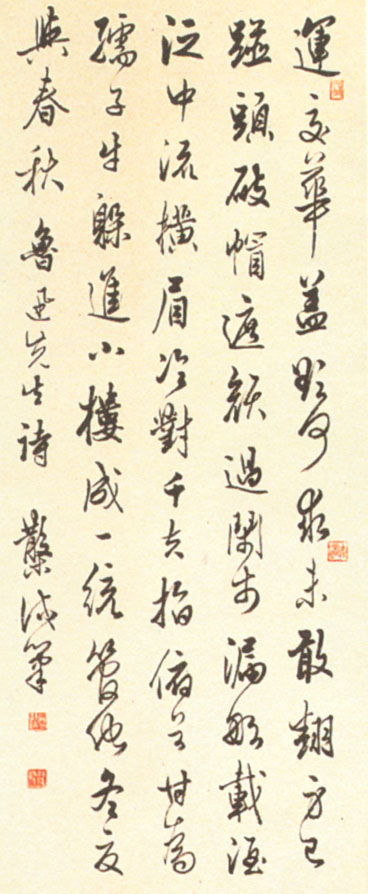 運交華蓋欲何求未敢翻身已
踫頭破帽遮顏過鬧市漏船載酒
泛中流橫眉冷對千夫指俯首甘為
孺子牛躲進小樓成一統管他冬夏
與春秋 魯迅先生詩